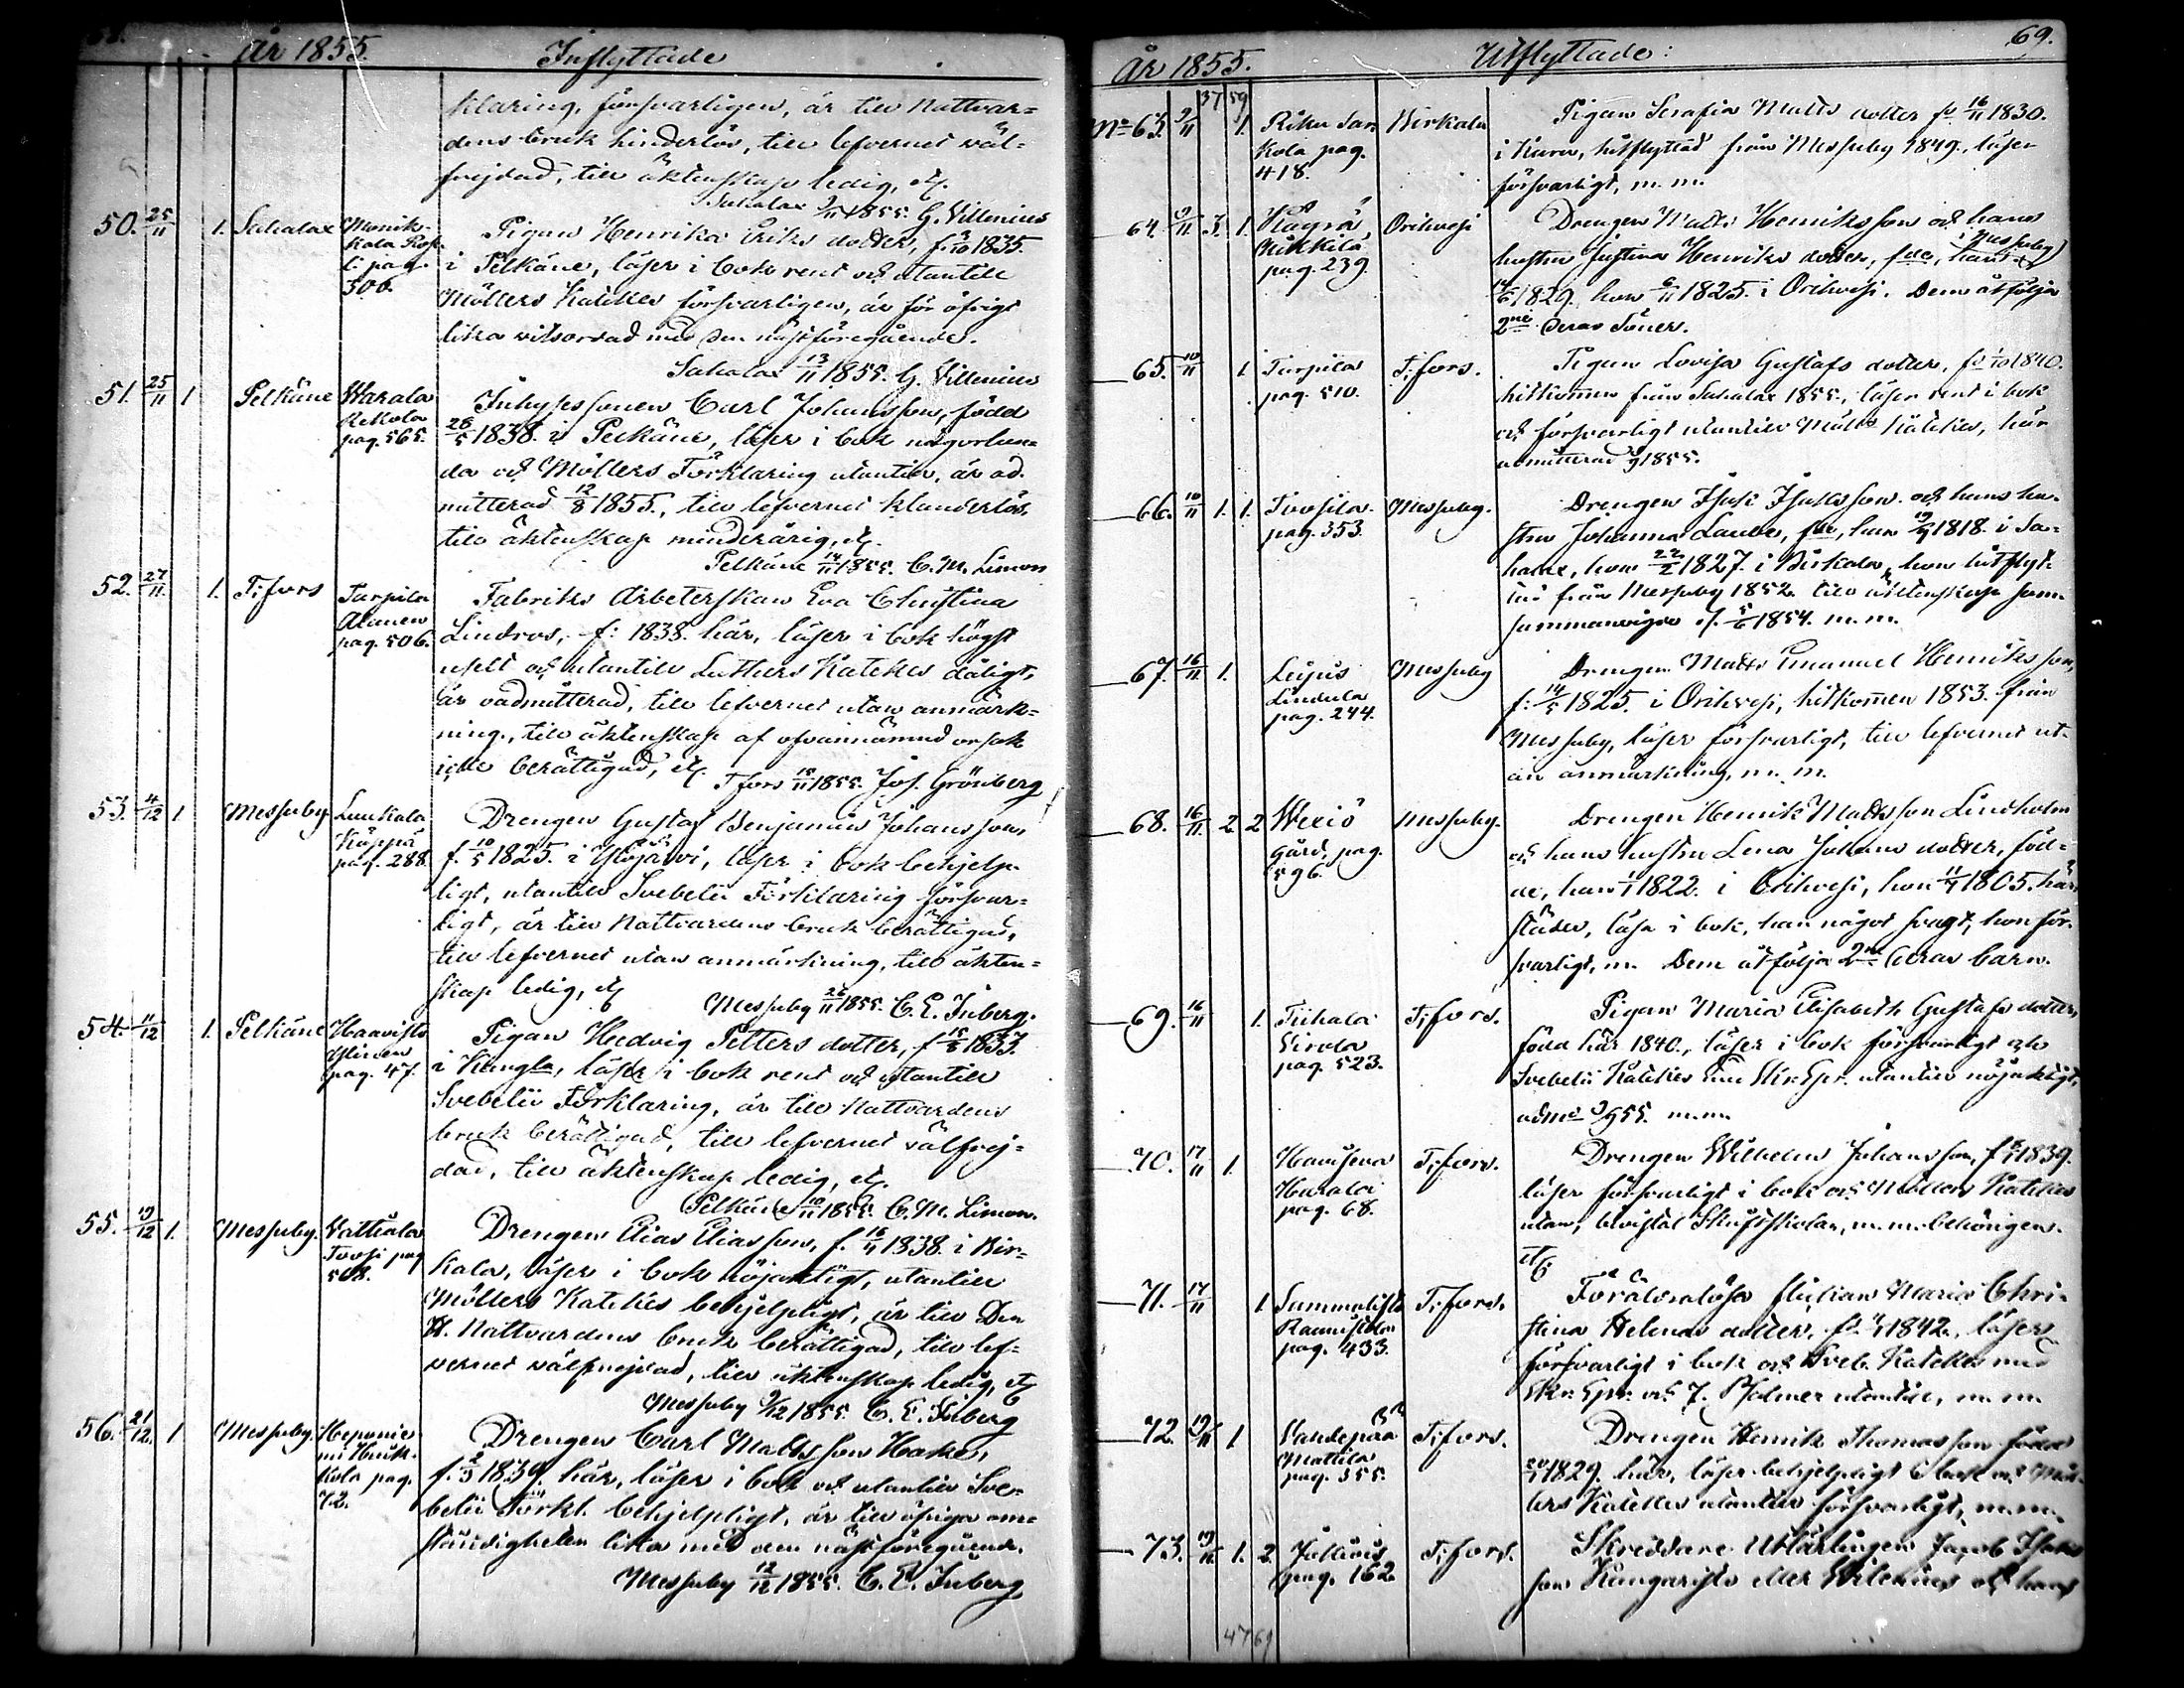 år 1855. Inflyttade
klaring, försvarligen, är till Nattvar=
dens bruk hinderlös, till lefvernet väl=
frejdad, till äktenskap ledig, etc.
Sahalax 9/11 1855. G. Villenius
50. 25/11 1. Sahalax pag. 306.
Pigan Henrika Eriks dotter, f. 1835.
i Pelkäne, läser i bok rent och utantill
Möllers Katekes försvarligen, är för öfrigt
lika vitsordad med den nästföregående.
Sahalax 13/11 1855. G. Villenius
51. 25/11 1 Pelkäne Harala Rekola pag. 565.
Inhyses sonen Carl Johansson, född
26/5 1838. i Pelkäne, läser i bok någorlun=
da och Möllers Förklaring utantill, är ad
mitterad 12/8 1855., till lefvernet klanderlös,
till äktenskap minderårig, etc.
Pelkäne 14/11 1855. C. M. Limon
52. 27/11. 1. T;fors Tarpila Alanen pag. 506.
Fabriks Arbeterskan Eva Christina
Lindros, f: 1838. här, läser i bok högst
uselt och utantill Luthers Katekes dåligt,
är oadmitterad, till lefvernet utan anmärk=
ning, till äktenskap af ofvannämnd orsak
icke berättigad, etc. T fors 15/11 1855. Jos. Grönberg
53. 4/12 1 Messuby Luukala Käppä pag. 288.
Drengen Gustaf Benjamin Johansson,
f. 10/5 1825. i Ylöjärvi, läser i bok behjelp=
ligt, utantill Svebelii Förklaring försvar=
ligt, är till Nattvardens bruk berättigad,
till lefvernet utan anmärkning, till äkten=
skap ledig, etc
Messuby 26/11 1855. C. E. Inberg.
54. 11/12 1. Pelkäne Haavisto Ylinen pag. 47.
Pigan Hedvig Petters dotter, f. 1833.
i Kangla, läser i bok rent och utantill
Svebelii Förklaring, är till Nattvardens
bruk berättigad, till lefvernet välfrej=
dad, till äktenskap ledig, etc.
Pelkäne 1855. C. M. Limon.
55. 19/12 1. Messuby. Vattiala pag 508.
Drengen Elias Eliasson, f. 1838. i Bir=
kala, läser i bok nöjaktigt, utantill
Möllers Katekes behjelpligt, är till Den
H. Nattvardens bruk berättigad, till lef=
vernet välfrejdad, till äktenskap ledig, etc
Messuby 9/12 1855. C. E. Inberg
56. 21/12. 1 Messuby. pag. 72.
Drengen Carl Mattsson Hake,
f. 1834. här, läser i bok och utantill Sve=
belii Förkl. behjelpligt, är till öfriga om=
ständigheten lika med den nästföregående.
Messuby 12/12 1855. C. E. Inberg
år 1855. Utflyttade: 69.
37 59
No 63. 9/11 1. pag. 418. Birkala
Pigan Serafia Matts dotter fd 16/11 1830.
i Kuru, hitflyttad från Messuby 1849., läser
försvarligt, m. m.
64. 9/11 3. 1. Mikkila pag. 239. Orihvesi
Drengen Matts Henriksson och hans
hustru Justina Henriks dotter, fdde, han
i Messuby
1829. hon 6/11 1825. i Orihvesi. Dem åtfölja
2ne deras Söner.
65. 10/11 1 Tarpila pag. 510. T;fors.
Pigan Lovisa Gustafs dotter, fd 1840.
hitkommen från Sahalax 1855., läser rent i bok
och försvarligt utantill Möllers Katekes, här
admitterad 1855.
66. 10/11 1. 1. pag. 353. Messuby.
Drengen Isak Isaksson och hans hu=
stru Johanna, fdde, han 1818. i Sa=
halax, hon 22/2 1827. i Birkala, hon hitflyt=
tad från Messuby 1852. till äktenskap sam
sammanvigde d. 5/6 1854. m. m.
67. 16/11 1. Lindula pag. 244. Messuby
Drengen Matts Emanuel Henriksson,
f: 14/5 1825. i Orihvesi, hitkommen 1853. från
Messuby, läser försvarligt, till lefvernet ut=
an anmärkning, m. m.
68. 16/11 2. 2 Wexiö gård, pag. 596. Messuby.
Drengen Henrik Mattsson Lindholm
och hans hustru Lena Johans dotter, föd=
de, han 1822. i Orihvesi, hon 1805. här
städes, läsa i bok, han något svagt, hon för=
svarligt, m. Dem åtfölja 2ne deras barn.
69. 16/11 1. Tiihala pag. 523. T;fors.
Pigan Maria Elisabeth Gustafs dotter,
född här 1840., läser i bok försvarligt och
Svebelii Katekes utantill nöjaktigt,
55. m.m.
70. 17/11 1. Haralo pag. 68. T;fors.
Drengen Wilhelm Johansson, f. 1839.
läser försvarligt i bok och Möllers Katekes
utan, bevistat Skriftskolan, m. m. behörigen.
etc
71. 17/11 1 pag. 433. T;fors.
Föräldralösa flickan Maria Chri=
stina Helenas dotter, fd 1842., läser
försvarligt i bok och Sveb. Katekes med
Skr: Spr: och 7. Psalmer utantill, m. m.
72. 19/11 1 Mattila pag. 355. T;fors.
Drengen Henrik Thomasson född
1829. här, läser behjelpligt i bok och Möl=
lers Katekes utantill försvarligt, m. m.
73. 19/11 1. 2. pag. 162. T;fors.
Skreddare Utlärlingen Jacob Isaks
son Kangaristo eller och hans
47 69